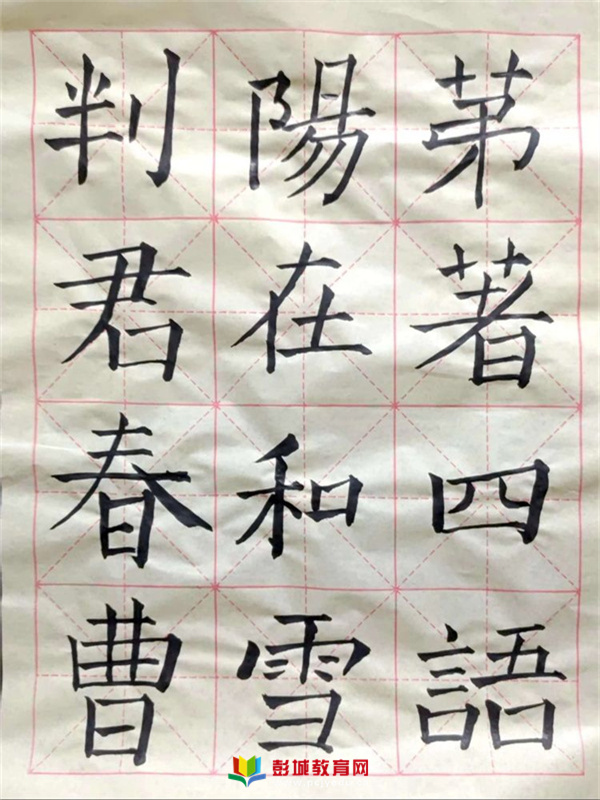 苐著四語
陽在和雪
判君春曹
彭城教育网